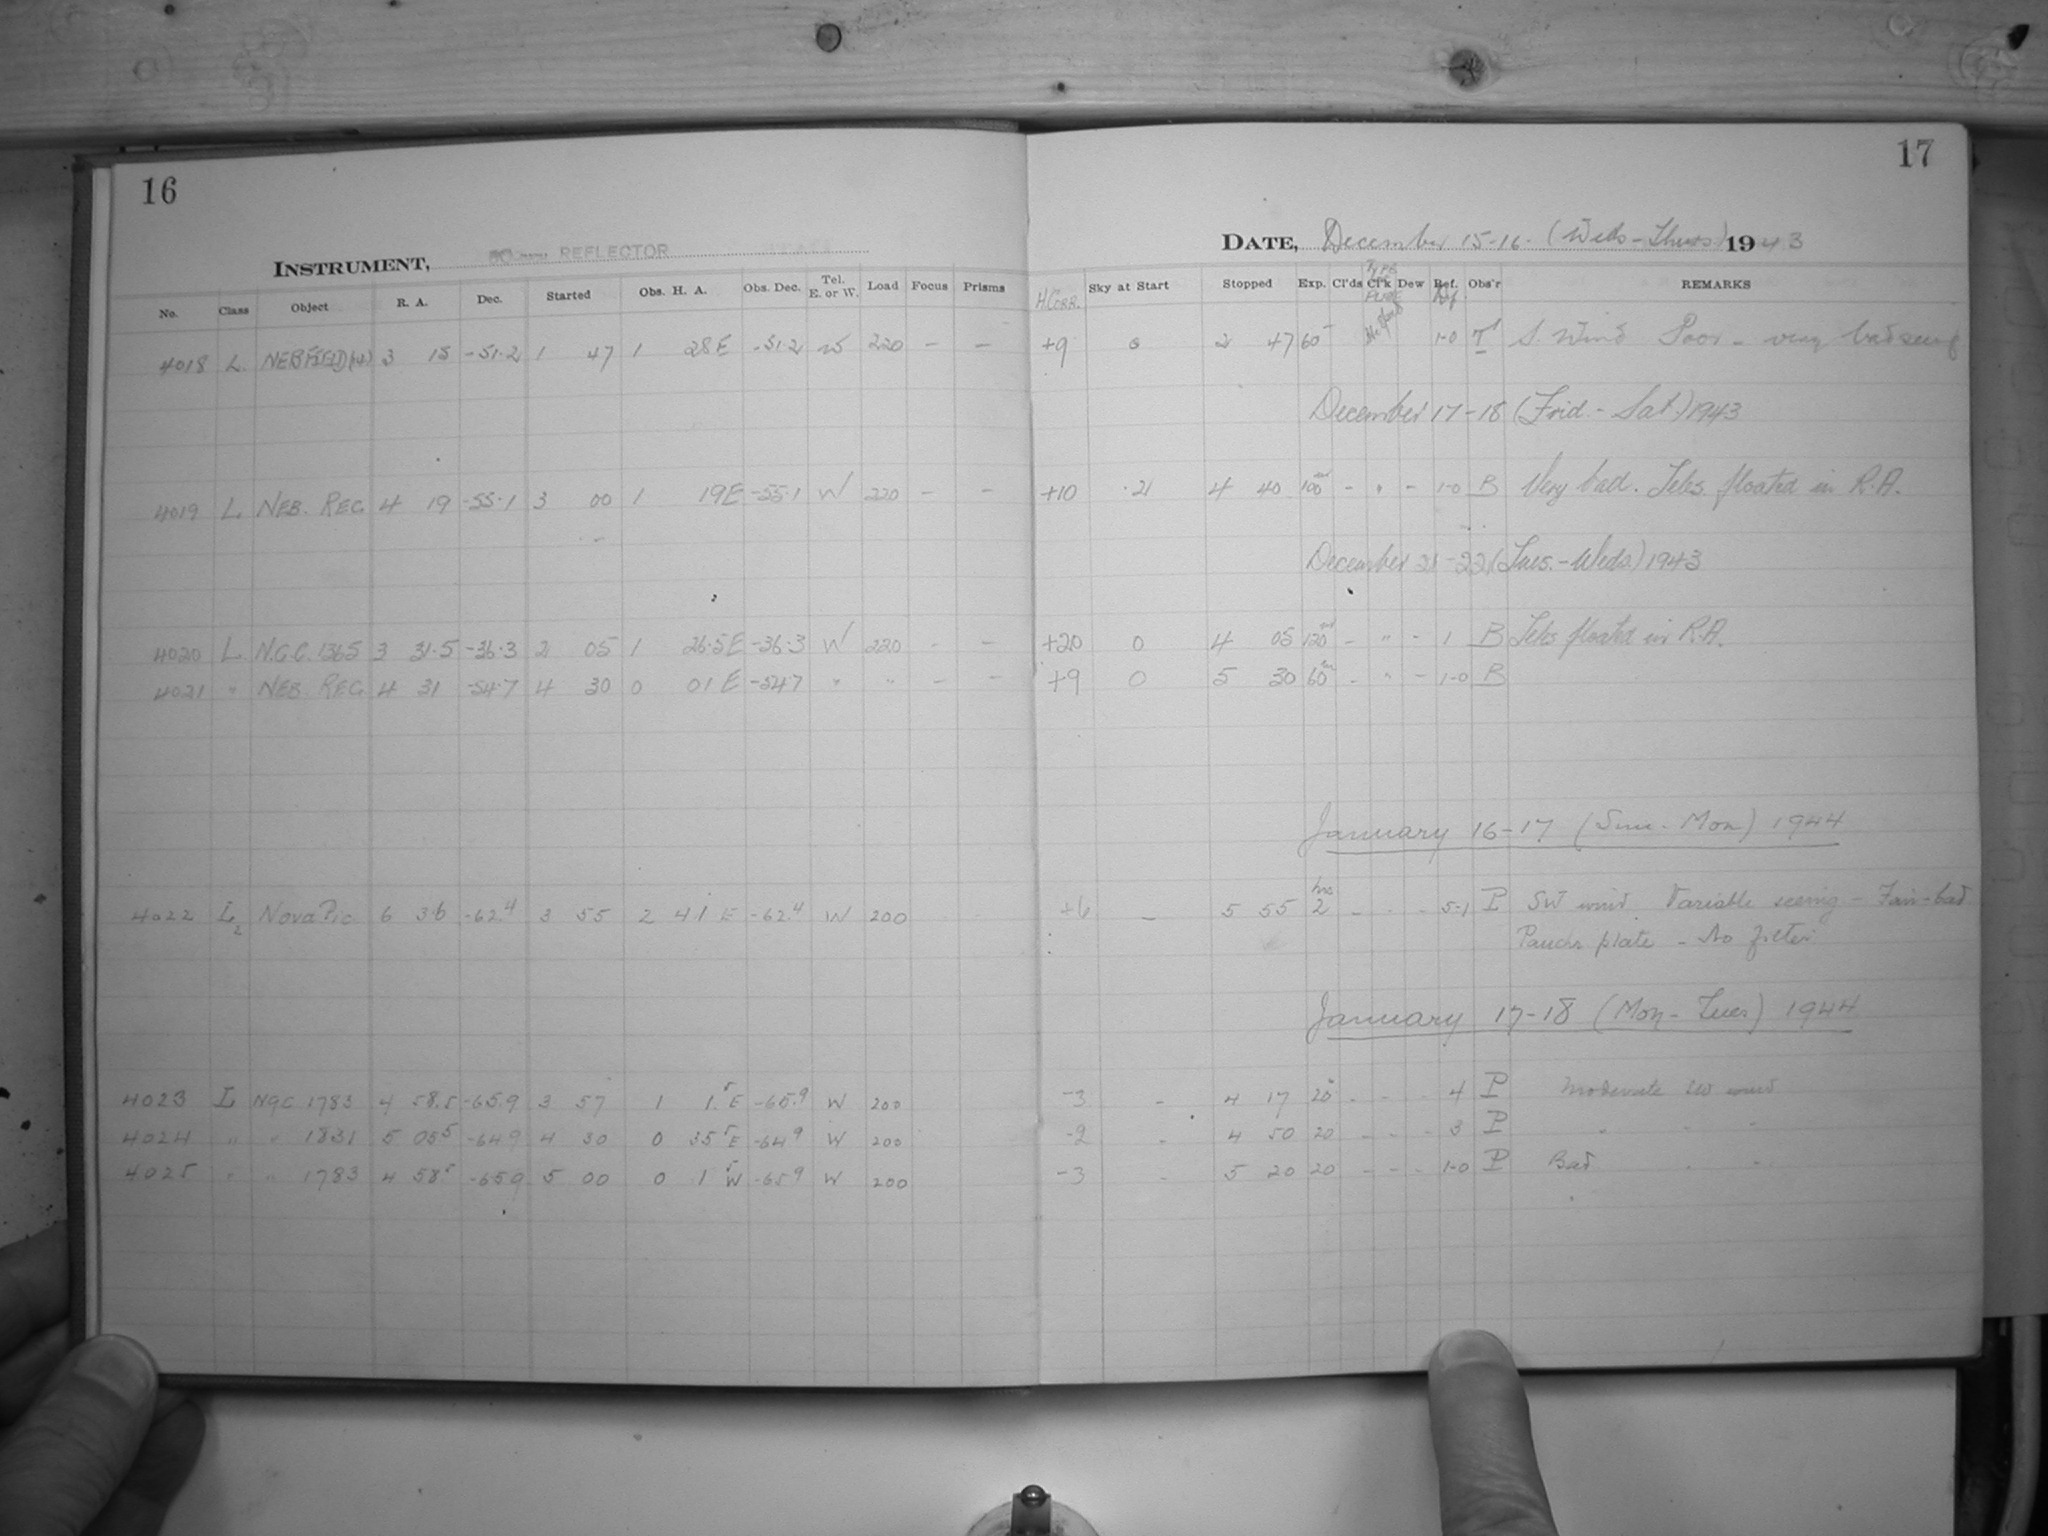 16
17
INSTRUMENT, REFLECTOR
DATE, December 15-16. (Weds-Thurs) 1943
No. Class Object R. A. Dec. Started Obs. H. A. Obs. Dec. Tel. E. or W. Load Focus Prisms H Corr. Sky at Start Stopped Exp. Cl'ds Cl'k Dew Ref. Obs'r REMARKS
4018 L. 3 15 -51.2 1 47 1 28E -51.2 W 220 - - +9 0 2 47 60 1-0 S. Wind Poor - very bad seeing
December 17-18 (Frid. - Sat.) 1943
4019 L NEB. REG. 4 19 -55.1 3 00 1 19E -55.1 W 220 - - +10 .21 4 40 100 - " - 1-0 B Very bad. Teles. floated in R.A.
December 21-22 (Tues. - Weds) 1943
4020 L N.G.C. 1365 3 31.5 -36.3 2 05 1 26.5E -36.3 W 220 - - +20 0 4 05 120 - " - 1 B Teles floated in R.A.
4021 " NEB. REG. 4 31 -54.7 4 30 0 01E -54.7 " " - - +9 0 5 30 60 - " - 1-0 B
January 16-17 (Sun - Mon) 1944
4022 L2 Nova Pic 6 36 -62.4 3 55 2 41 E -62.4 W 200 +6 - 5 55 2 hrs - - - 5-1 P SW wind Variable seeing - Fair-bad
Panchr plate - No filter
January 17-18 (Mon - Tues) 1944
4023 L NGC 1783 4 58.5 -65.9 3 57 1 1.5 E -65.9 W 200 -3 - 4 17 20 - - - 4 P Moderate SW wind
4024 " " 1831 5 05.5 -64.9 4 30 0 35.5 E -64.9 W 200 -2 - 4 50 20 - - - 3 P " " "
4025 " " 1783 4 58.5 -65.9 5 00 0 1.5 W -65.9 W 200 -3 - 5 20 20 - - - 1-0 P Bad " "